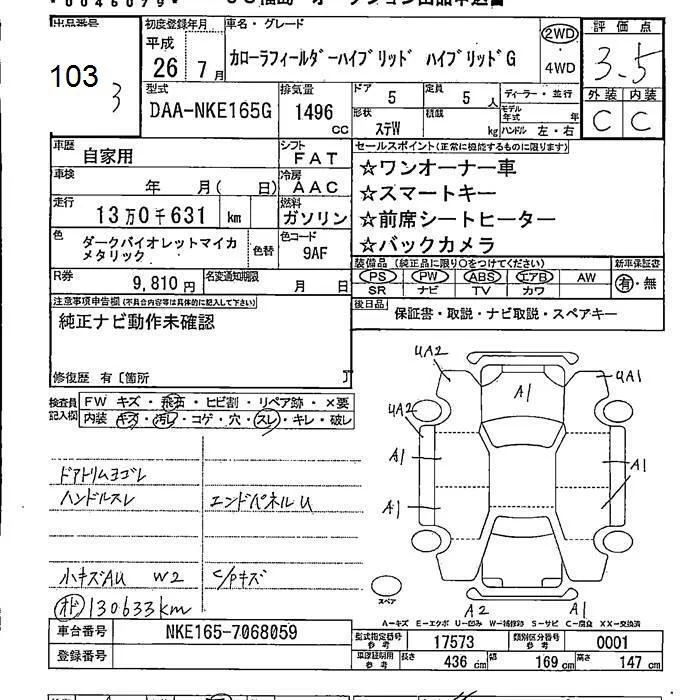 出品番号
103
3
初度登録年月
平成
26年 7月
車名・グレード
カローラフィールダーハイブリッド ハイブリッドG
2WD
4WD
評価点
3.5
外装 内装
C C
型式
DAA-NKE165G
排気量
1496
cc
ドア
5
定員
5人
形状
ステW
積載
kg
ディーラー・並行
モデル年式 年
ハンドル 左・右
車歴
自家用
シフト
FAT
車検
年 月( 日)
冷房
AAC
走行
13万0千631 km
燃料
ガソリン
色
ダークバイオレットマイカ
メタリック
色替
色コード
9AF
R券
9,810円
名変通知期限
月 日
セールスポイント(正常に機能するものに限ります)
☆ワンオーナー車
☆スマートキー
☆前席シートヒーター
☆バックカメラ
装備品(純正品に限り○をつけてください)
新車保証書
PS PW ABS エアB AW
有・無
SR ナビ TV カワ
後日品
保証書・取説・ナビ取説・スペアキー
注意事項申告欄(不具合内容等は具体的に記入して下さい)
純正ナビ動作未確認
修復歴 有〔箇所 〕
検査員
記入欄
FW キズ・飛石・ヒビ割・リペア跡・×要
内装 キズ・汚レ・コゲ・穴・スレ・キレ・破レ
ドアトリムヨゴレ
ハンドルスレ
エンドパネルU
小キズAU W2 C/Pキズ
オド 130633km
UA2
A1
UA1
UA2
A1
A1
A1
A2
A1
スペア
A-キズ E-エクボ U-凹み W-補修跡 S-サビ C-腐食 XX-交換済
車台番号
NKE165-7068059
登録番号
型式指定番号
参考
17573
類別区分番号
参考
0001
車庫証明用
参考
長さ 436 cm
幅 169 cm
高さ 147 cm